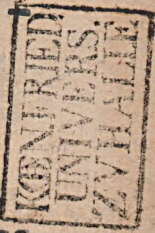 KGL.FRIED.
UNIVERS.
ZV HALLE